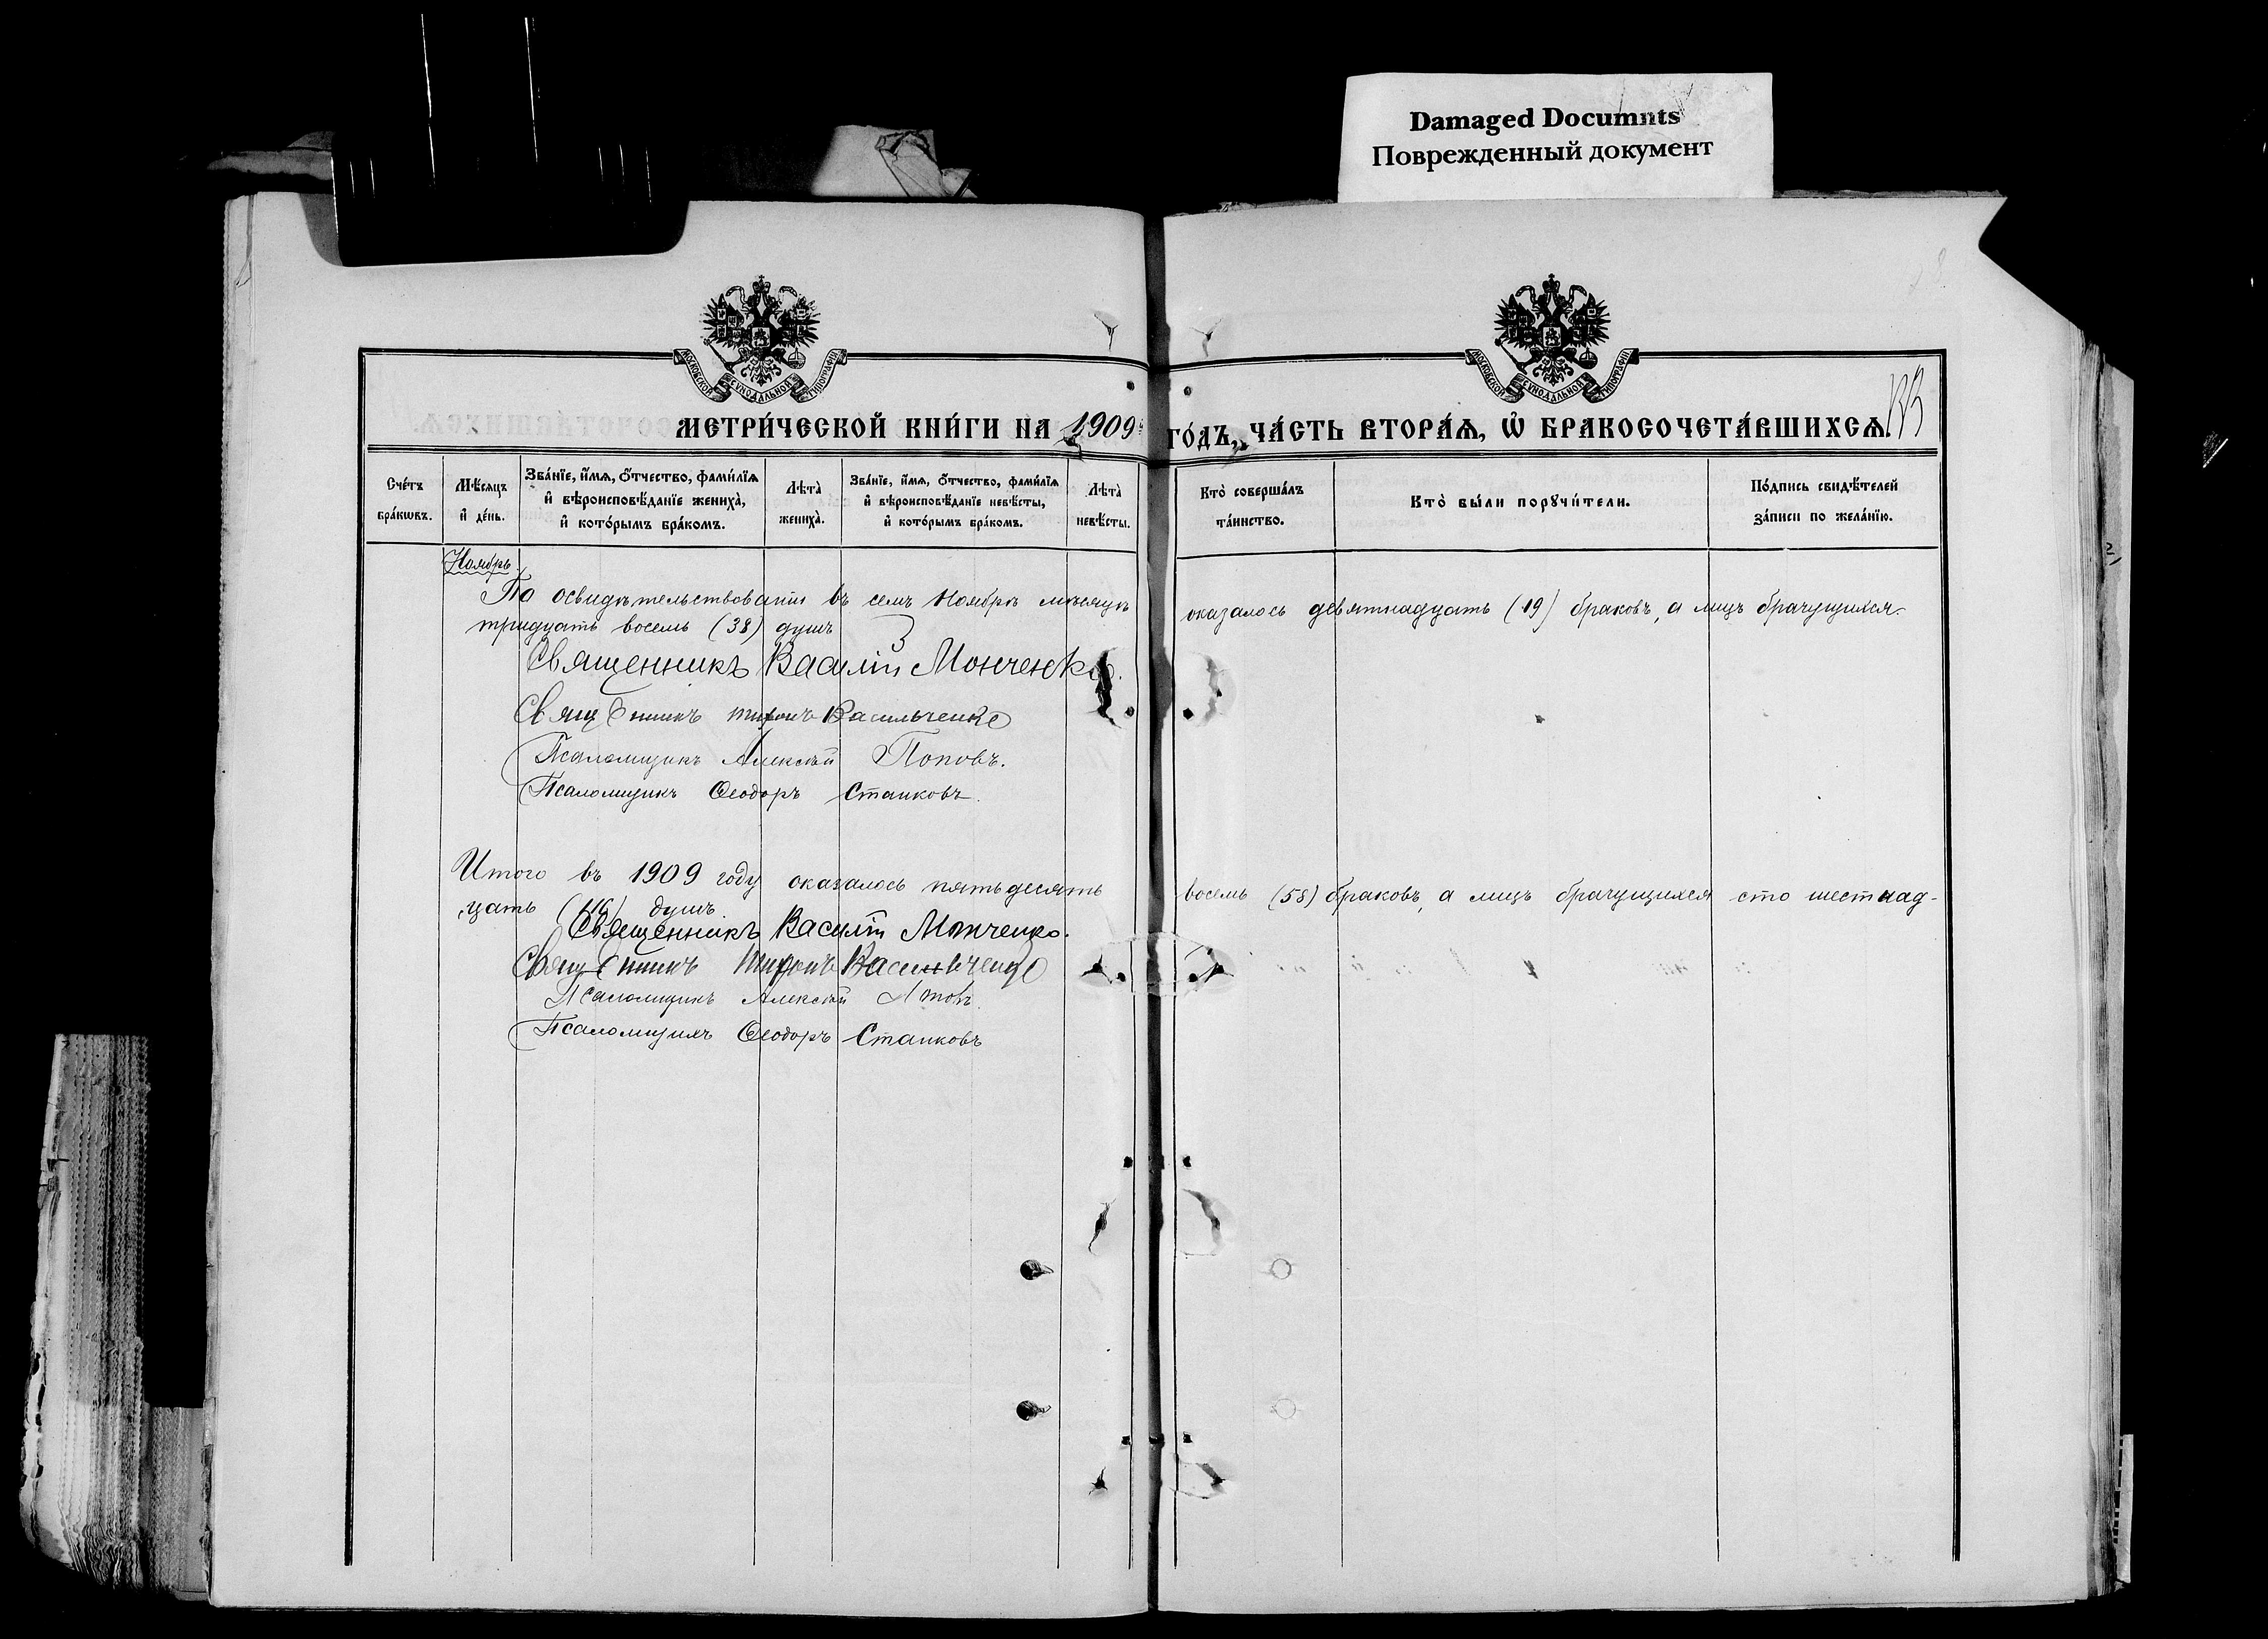 Damaged Documnts
Поврежденный документ
МОСКОВСКОЙ СѴНОДАЛЬНОЙ ТИПОГРАФІИ
МОСКОВСКОЙ СѴНОДАЛЬНОЙ ТИПОГРАФІИ
МЕТРИ́ЧЕСКОЙ КНИ́ГИ НА 1909 ГО́ДЪ, ЧА́СТЬ ВТОРА́Ѧ, Ѡ҆ БРАКОСОЧЕТА́ВШИХСѦ.
Сче́тъ бра́кѡвъ.
Мѣ́сяцъ и҆ де́нь.
Зва́нїе, и҆́мѧ, ѻ҆́тчество, фами́лїѧ и҆ вѣроисповѣ́данїе жениха̀, и҆ кото́рымъ бра́комъ.
Лѣта̀ жениха̀.
Зва́нїе, и҆́мѧ, ѻ҆́тчество, фами́лїѧ и҆ вѣроисповѣ́данїе невѣ́сты, и҆ кото́рымъ бра́комъ.
Лѣта̀ невѣ́сты.
Кто̀ соверша́лъ та́инство.
Кто̀ бы́ли порꙋчи́тели.
По́дпись свидѣ́телей за́писи по жела́нїю.
Ноябрь.
По освидѣтельствованіи въ семъ Ноябрѣ мѣсяцѣ оказалось девятнадцать (19) браковъ, а лицъ брачущихся
тридцать восемь (38) душъ
Священникъ Василій Монченко.
Священникъ Миронъ Васильченко
Псаломщикъ Алексѣй Поповъ.
Псаломщикъ Ѳеодоръ Станковъ.
Итого въ 1909 году оказалось пятьдесятъ восемь (58) браковъ, а лицъ брачущихся сто шестнад-
цать (116) душъ.
Священникъ Василій Монченко.
Священникъ Миронъ Васильченко
Псаломщикъ Алексѣй Поповъ.
Псаломщикъ Ѳеодоръ Станковъ